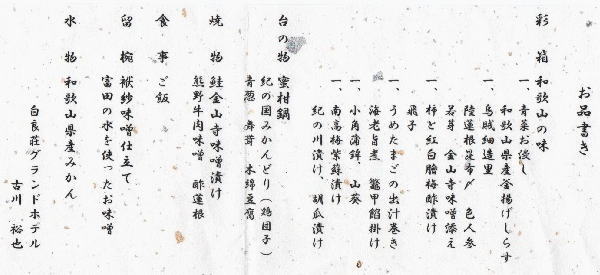 お品書き
彩箱 和歌山の味
一、青菜お浸し
和歌山県産釜揚げしらす
一、烏賊細造里
陸蓮根昆布〆 色人参
若芽 金山寺味噌添え
一、柿と紅白膾梅酢漬け
飛子
一、うめたまごの出汁巻き
海老旨煮 鼈甲餡掛け
一、小角蒲鉾、山葵
一、南高梅紫蘇漬け
紀の川漬け、胡瓜漬け
台の物 蜜柑鍋
紀の国みかんどり(鶏団子)
青葱 舞茸 木綿豆腐
焼物 鮭金山寺味噌漬け
熊野牛肉味噌 酢蓮根
食事 ご飯
留椀 袱紗味噌仕立て
富田の水を使ったお味噌
水物 和歌山県産みかん
白良荘グランドホテル
古川 裕也